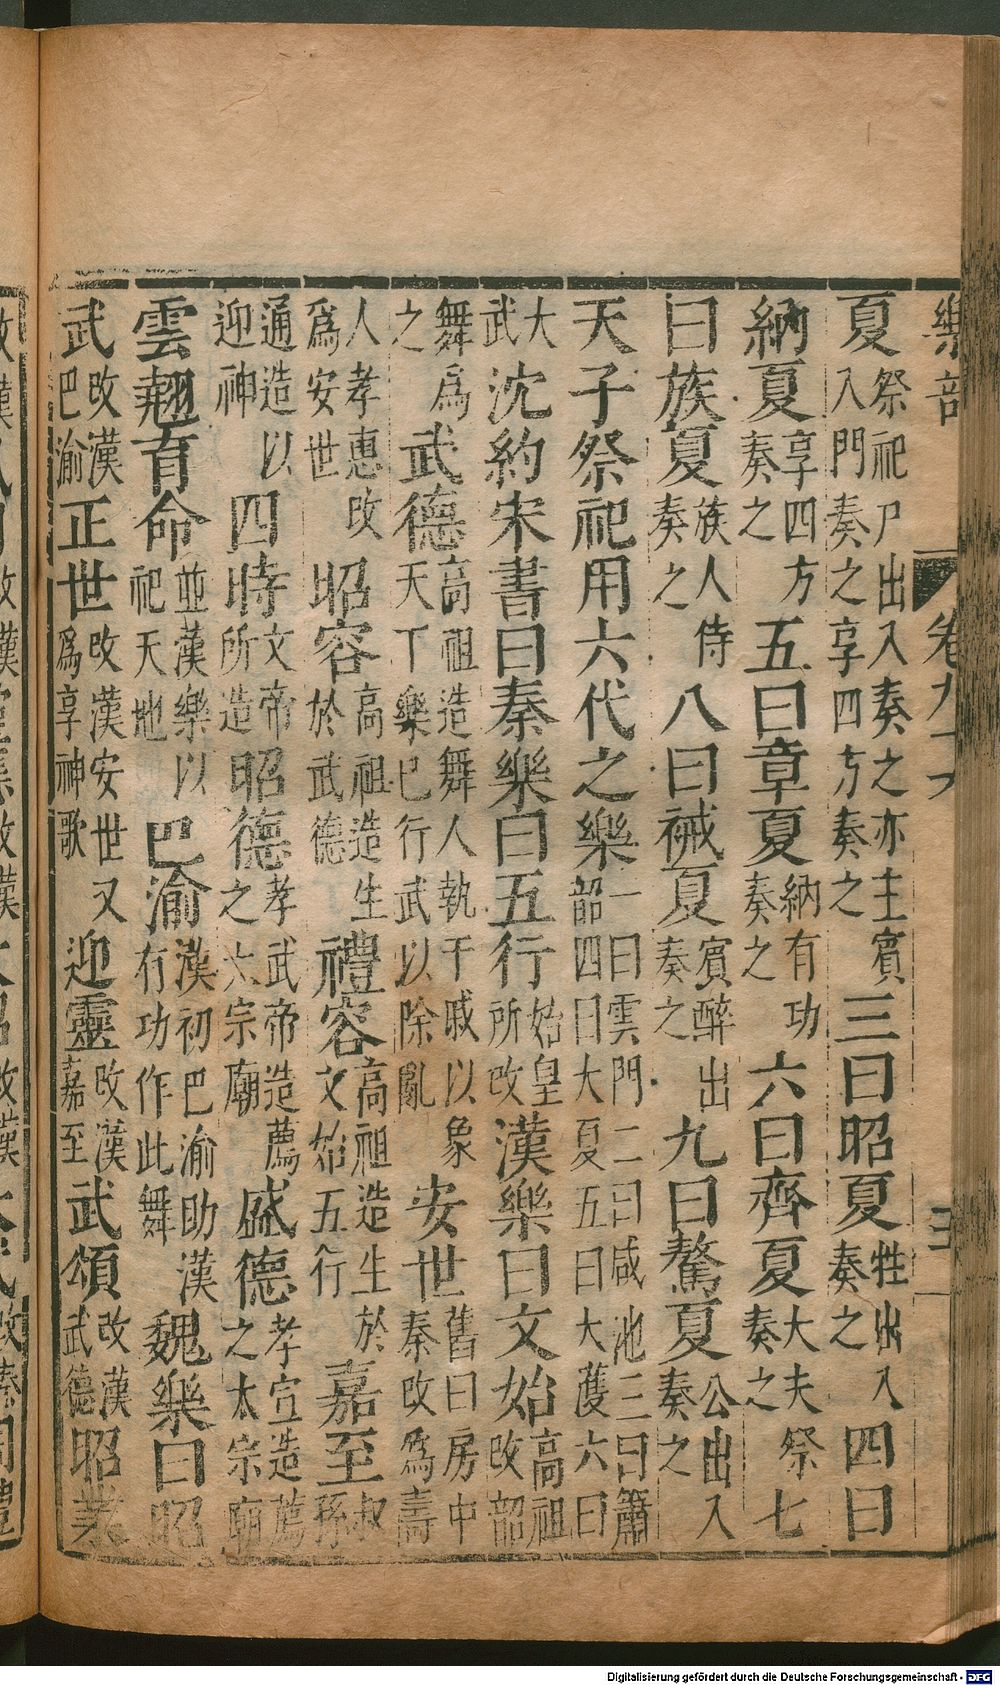 樂部 卷九十六
夏祭祀尸出入奏之亦主賓入門奏之享四方奏之三曰昭夏牲出入奏之四曰
納夏享四方奏之五曰章夏納有功奏之六曰齊夏大夫祭奏之七
曰族夏族人侍奏之八曰祴夏賓醉出奏之九曰驁夏公出入奏之
天子祭祀用六代之樂一曰雲門二曰咸池三曰簫韶四曰大夏五曰大濩六曰
大武沈約宋書曰秦樂曰五行始皇所改漢樂曰文始高祖改韶
舞爲之武德高祖造舞人執干戚以象天下樂已行武以除亂安世舊曰房中秦改爲壽
人孝惠改爲安世昭容高祖造生於武德禮容高祖造生於文始五行嘉至叔孫
通造以迎神四時文帝所造昭德孝武帝造薦之大宗廟盛德孝宣造薦之太宗廟
雲翹育命並漢樂以祀天地巴渝漢初巴渝助漢有功作此舞魏樂曰昭
武改漢巴渝正世改漢安世又爲享神歌迎靈改漢嘉至武頌改漢武德昭業
Digitalisierung gefördert durch die Deutsche Forschungsgemeinschaft - DFG